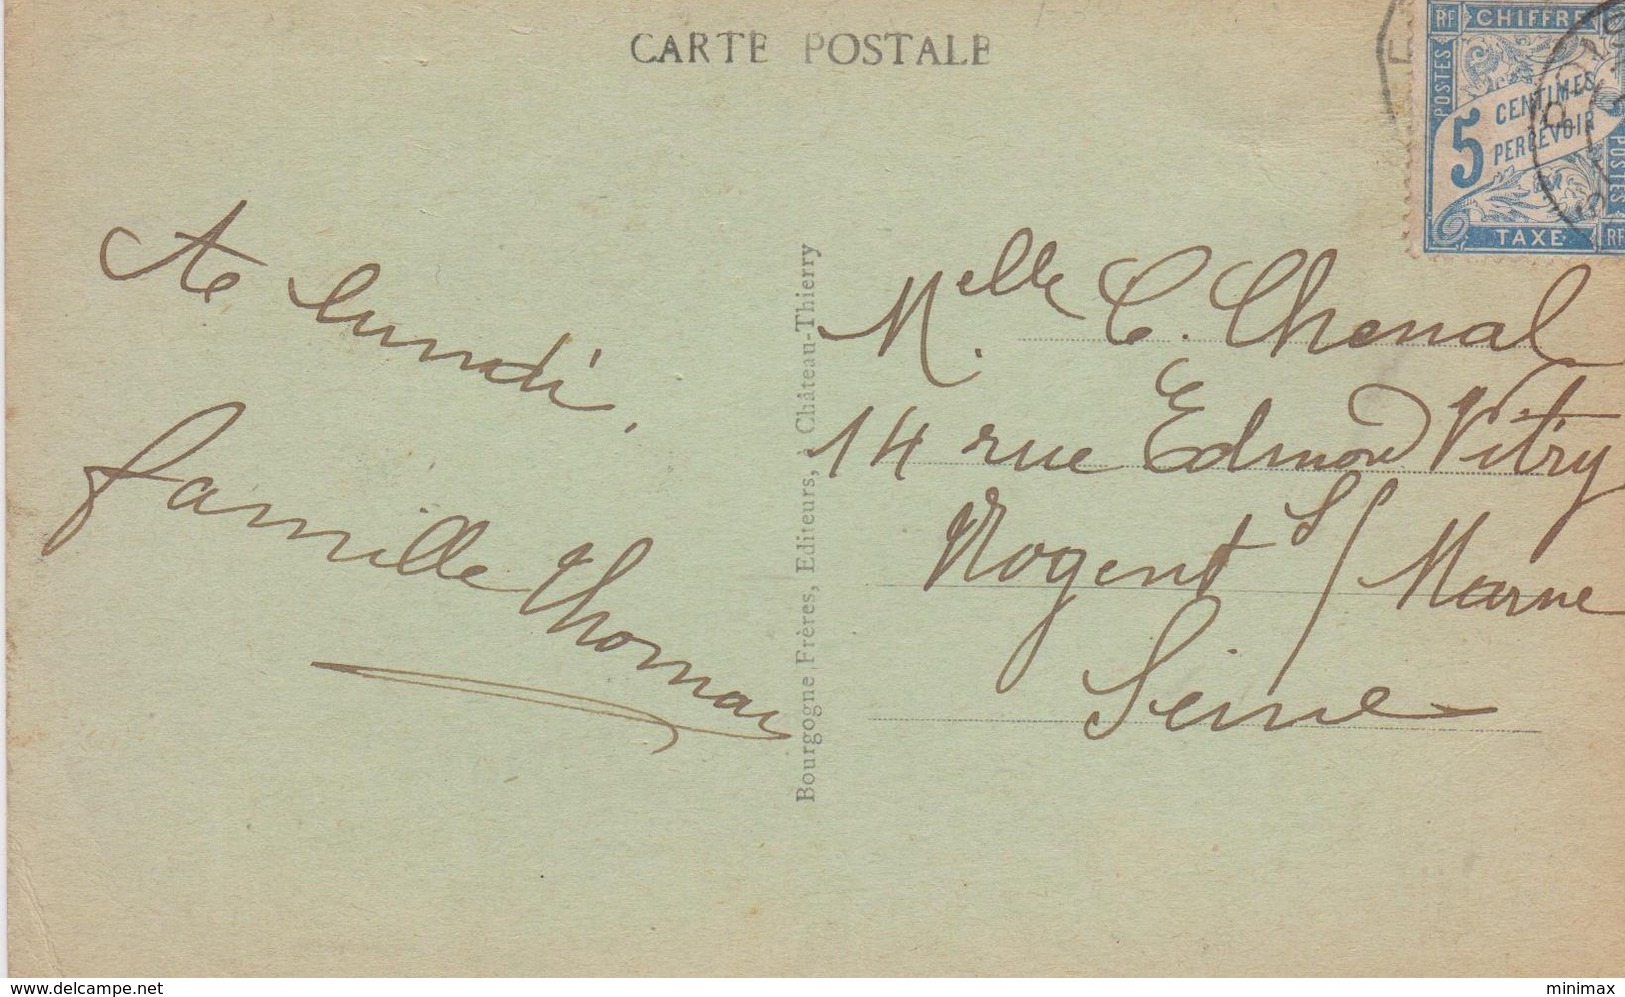 CARTE POSTALE
RF CHIFFRE
POSTES
5 CENTIMES
À
PERCEVOIR
POSTES
TAXE RF
A lundi.
famille Thomas
Bourgogne Frères, Editeurs, Château-Thierry
Melle C. Chenal
14 rue Edmond Vitry
Nogent s/ Marne
Seine
www.delcampe.net
minimax